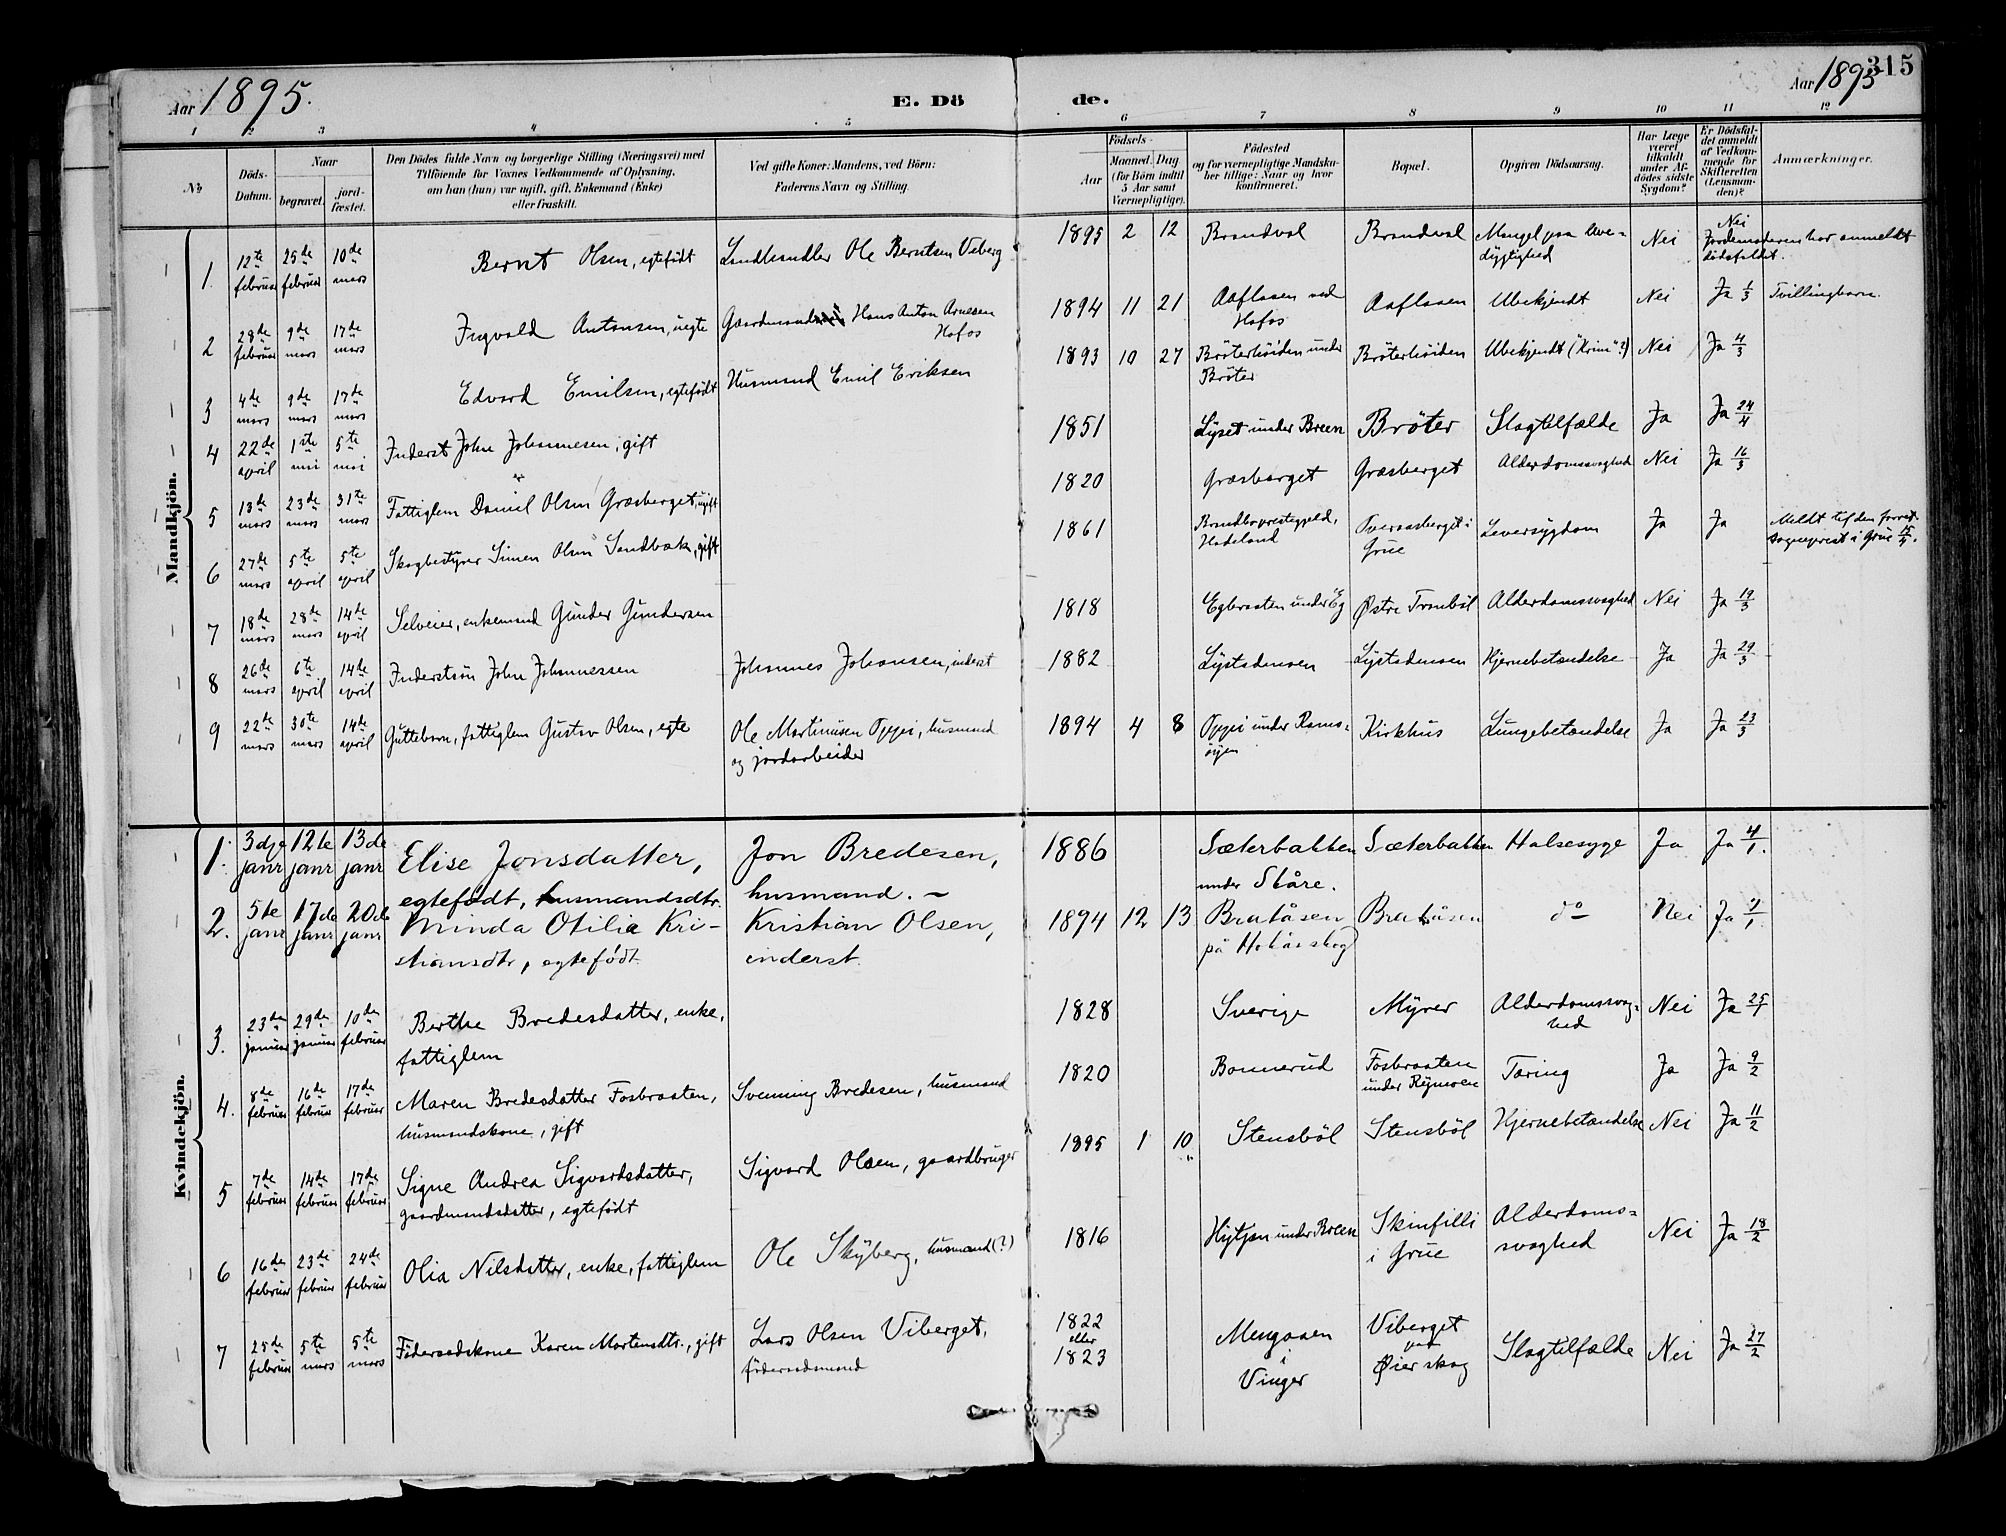 Aar 1895.
E. Dö
de.
Aar 1895
315
1 2 3 4 5 6 7 8 9 10 11 12
No
Döds-Datum.
Naar
begravet.
jord-fæstet.
Den Dödes fulde Navn og borgerlige Stilling (Næringsvei) med
Tilföiende for Voxnes Vedkommende af Oplysning,
om han (hun) var ugift, gift, Enkemand (Enke)
eller fraskilt.
Ved gifte Koner: Mandens, ved Börn:
Faderens Navn og Stilling.
Födsels-
Aar
Maaned. Dag
(for Börn indtil
5 Aar samt
Værnepligtige).
Födested
og for værnepligtige Mandska-
ber tillige: Naar og hvor
konfirmeret.
Bopæl.
Opgiven Dödsaarsag.
Har Læge
været
tilkaldt
under Af-
dödes sidste
Sygdom?
Er Dödsfal-
det anmeldt
af Vedkom-
mende for
Skifteretten
(Lensman-
den)?
Anmærkninger.
Mandkjön.
1. 12te februar 25de februar 10de mars Bernt Olsen, egtefödt Landhandler Ole Berntsen Viberg 1895 2 12 Brandval Brandval Mangel paa leve-
dygtighed Nei Nei
Jordemoderen har anmeldt
dödsfaldet.
2 28de februar 9de mars 17de mars Ingvald Antonsen, uegte Gaardmand Hans Anton Arnesen
Hofos 1894 11 21 Aaflaaen ved
Hofos Aaflaaen Ubekjendt Nei Ja 1/3 Tvillingbarn.
3 4de mars 9de mars 17de mars Edvard Emilsen, egtefödt Husmand Emil Eriksen 1893 10 27 Bröterhöiden under
Bröter Bröterhöiden Ubekjendt ("Krim"?) Nei Ja 4/3
4 22de april 1ste mai 5te mai Inderst John Johannesen, gift 1851 Lyset under Breen Bröter Slagtilfælde Ja Ja 24/4
5 13de mars 23de mars 31te mars Fattiglem Daniel Olsen Græsberget, ugift 1820 Græsberget Græsberget Alderdomssvaghed Nei Ja 16/3
6 27de mars 5te april 5te april Skogbestyrer Simen Olsen Sandbæk, gift 1861 Brandbo præstegjeld,
Hadeland Tveraaberget i
Grue Leversygdom Ja Ja Meldt til den forret.
sogneprest i Grue 15/4.
7 18de mars 28de mars 14de april Selveier, enkemand Gunder Gundersen 1818 Egbraaten under Eg Østre Tranböl Alderdomssvaghed Nei Ja 19/3
8 26de mars 6te april 14de april Inderstsön John Johannessen Johannes Johansen, inderst 1882 Lystadmoen Lystadmoen Hjernebetændelse Ja Ja 29/3
9 22de mars 30te mars 14de april Guttebarn, fattiglem Gustav Olsen, egte Ole Martinusen Oppi, husmand
og jordarbeider 1894 4 8 Oppi under Rams-
öien Kirkhus Lungebetændelse Ja Ja 23/3
Kvindekjön.
1. 3dje janr 12te janr 13de janr Elise Jonsdatter,
egtefödt, husmandsdtr. Jon Bredesen,
husmand. – 1886 Sæterbakken
under Skåre. Sæterbakken Halsesyge Ja Ja 4/1.
2. 5te janr 17de janr 20de janr Minda Otilia Kri-
stiansdtr, egtefödt. Kristian Olsen,
inderst. 1894 12 13 Bratåsen
på Hokåsskog Bratåsen do Nei Ja 7/1.
3. 23de januar 29de januar 10de februar Berthe Bredesdatter, enke,
fattiglem 1828 Sverige Myrer Alderdomssvag-
hed Nei Ja 25/1
4. 8de februar 16de februar 17de februar Maren Bredesdatter Fosbraaten,
husmandskone, gift Svenning Bredesen, husmand 1820 Bonnerud Fosbraaten
under Rymoen Tæring Ja Ja 9/2
5 7de februar 14de februar 17de februar Signe Andrea Sigvardsdatter,
gaardmandsdatter, egtefödt Sigvard Olsen, gaardbruger 1895 1 10 Stensböl Stensböl Hjernebetændelse Nei Ja 11/2
6 16de februar 23de februar 24de februar Olia Nilsdatter, enke, fattiglem Ole Skyberg, husmand (?) 1816 Hytjan under Breen Skinfilli
i Grue Alderdoms-
svaghed Nei Ja 18/2
7 25de februar 5te mars 5te mars Föderaadskone Karen Mortensdtr., gift Lars Olsen Viberget,
föderaadsmand 1822
eller
1823 Mengaaen
i
Vinger Viberget
paa
Øier skog Slagtilfælde Nei Ja 27/2